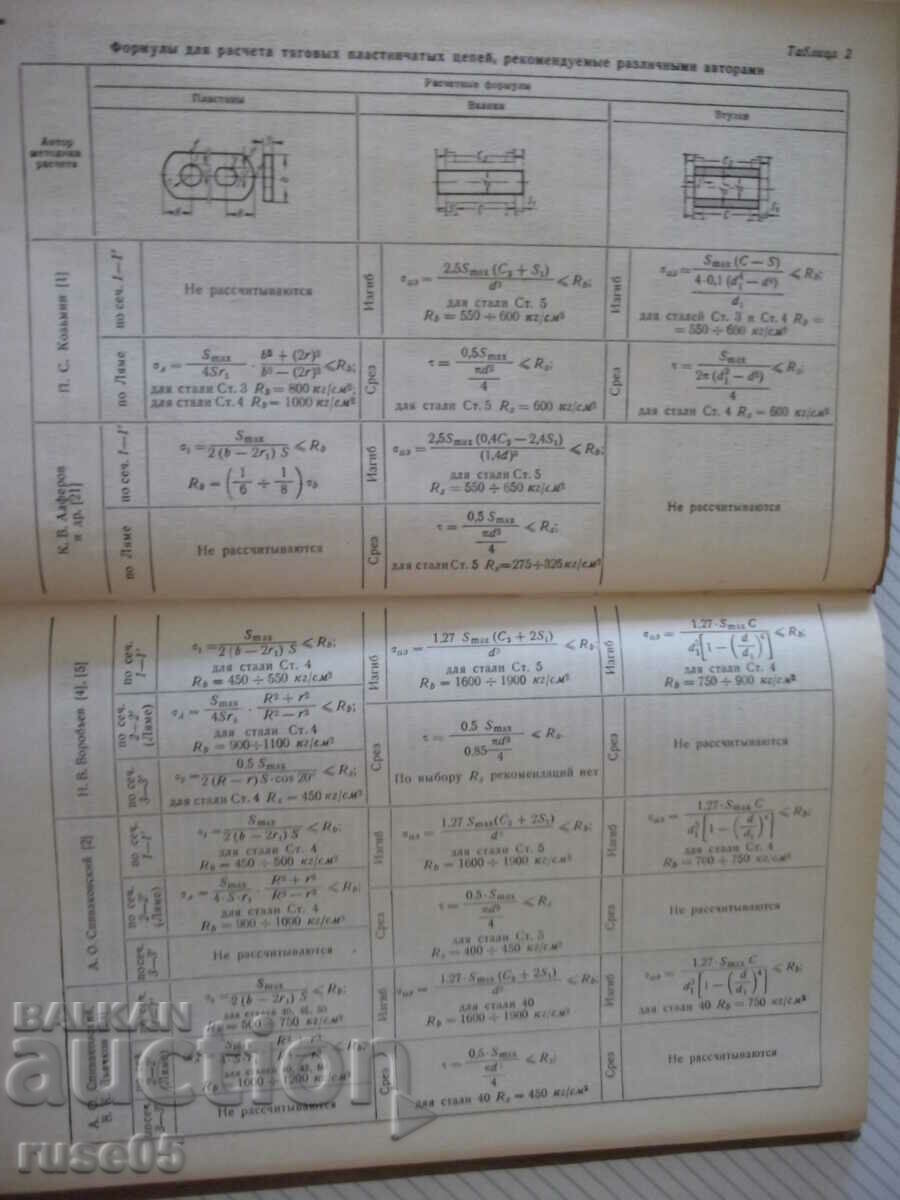 Таблица 2
Формулы для расчета тяговых пластинчатых цепей, рекомендуемые различными авторами
Автор методики расчета
Расчетные формулы
Пластины
Валики
Втулки
П. С. Козьмин [1]
по сеч. 1—1'
Не рассчитываются
Изгиб
σиз = 2,5Smax (C2 + S1) / d³ ⩽ Rb;
для стали Ст. 5
Rb = 550 ÷ 600 кг/см²
Изгиб
σиз = Smax (C — S) / (4·0,1 (d1⁴ — d⁴) / d1) ⩽ Rb;
для сталей Ст. 3 и Ст. 4 Rb =
= 550 ÷ 600 кг/см²
по Ляме
σл = Smax / 4Sr1 · b² + (2r)² / b² — (2r)² ⩽ Rb;
для стали Ст. 3 Rb = 800 кг/см²
для стали Ст. 4 Rb = 1000 кг/см²
Срез
τ = 0,5Smax / (πd² / 4) ⩽ Rs;
для стали Ст. 5 Rs = 600 кг/см²
Срез
τ = Smax / (2π (d1² — d²) / 4) ⩽ Rs;
для стали Ст. 4 Rs = 600 кг/см²
К. В. Алферов и др. [21]
по сеч. 1—1'
σ1 = Smax / 2 (b — 2r1) S ⩽ Rb
Rb = (1/6 ÷ 1/8) σb
Изгиб
σиз = 2,5Smax (0,4C2 — 2,4S1) / (1,4d)³ ⩽ Rb;
для стали Ст. 5
Rs = 550 ÷ 650 кг/см²
Не рассчитываются
по Ляме
Не рассчитываются
Срез
τ = 0,5 Smax / (πd² / 4) ⩽ Rs;
для стали Ст. 5 Rs = 275÷325 кг/см²
Н. В. Воробьев [4], [5]
по сеч. 1—1'
σ1 = Smax / 2 (b — 2r1) S ⩽ Rb;
для стали Ст. 4
Rb = 450 ÷ 550 кг/см²
Изгиб
σиз = 1,27 · Smax (C2 + 2S1) / d³ ⩽ Rb;
для стали Ст. 5
Rb = 1600 ÷ 1900 кг/см²
Изгиб
1,27 · Smax C / d1³ [1 — (d/d1)⁴] ⩽ Rb;
для стали Ст. 4
Rb = 750 ÷ 900 кг/см²
по сеч. 2—2' (Ляме)
σл = Smax / 4Sr1 · R² + r² / R² — r² ⩽ Rb;
для стали Ст. 4
Rb = 900÷1100 кг/см²
Срез
τ = 0,5 Smax / (0,85 πd² / 4) ⩽ Rs.
По выбору Rs рекомендаций нет
Срез
Не рассчитываются
по сеч. 3—3'
0,5 Smax / 2 (R — r) S·cos 20° ⩽ Rs;
для стали Ст. 4 Rs = 450 кг/см²
А. О. Спиваковский [2]
по сеч. 1—1'
σ1 = Smax / 2 (b — 2r1) S ⩽ Rb;
для стали Ст. 4
Rb = 450 ÷ 500 кг/см²
Изгиб
σиз = 1,27 Smax (C2 + 2S1) / d³ ⩽ Rb;
для стали Ст. 5
Rb = 1600 ÷ 1900 кг/см²
Изгиб
σиз = 1,27·Smax C / d1³ [1 — (d/d1)⁴] ⩽ Rb;
для стали Ст. 4
Rb = 700 ÷ 750 кг/см²
по сеч. 2—2' (Ляме)
σл = Smax / 4·S·r1 · R² + r² / R² — r² ⩽ Rb;
для стали Ст. 4
Rb = 900 ÷ 1000 кг/см²
Срез
τ = 0,5·Smax / (πd² / 4) ⩽ Rs
для стали Ст. 5
Rs = 400 ÷ 450 кг/см²
Срез
Не рассчитываются
по сеч. 3—3'
Не рассчитываются
А. О. Спиваковский,
σ1 = Smax / 2 (b — 2r1) S ⩽ Rb;
750 кг/см²
Изгиб
1,27·Smax (C2 + 2S1) / d³ ⩽ Rb;
для стали 40
Rb = 1600 ÷ 1900 кг/см²
Изгиб
σиз = 1,27·Smax C / d1³ [1 — (d/d1)⁴] ⩽ Rb;
для стали 40 Rb = 750 кг/см²
2—2' (Ляме)
⩽ Rb;
1000 ÷ 1200 кг/см²
Срез
τ = 0,5·Smax / (πd² / 4) ⩽ Rs;
для стали 40 Rs = 450 кг/см²
Срез
Не рассчитываются
по сеч. 3—3'
Не рассчитываются
BALKAN
auction
ruse05